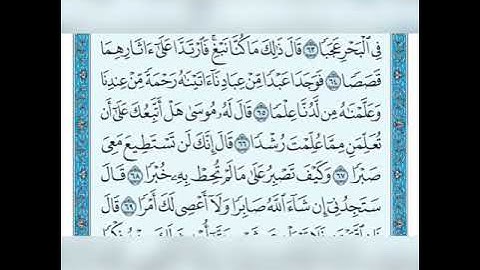 فِي ٱلْبَحْرِ عَجَبًا ٦٣ قَالَ ذَٰلِكَ مَا كُنَّا نَبْغِ فَٱرْتَدَّا عَلَىٰٓ ءَاثَارِهِمَا
قَصَصًا ٦٤ فَوَجَدَا عَبْدًا مِّنْ عِبَادِنَآ ءَاتَيْنَٰهُ رَحْمَةً مِّنْ عِندِنَا
وَعَلَّمْنَٰهُ مِن لَّدُنَّا عِلْمًا ٦٥ قَالَ لَهُۥ مُوسَىٰ هَلْ أَتَّبِعُكَ عَلَىٰٓ أَن
تُعَلِّمَنِ مِمَّا عُلِّمْتَ رُشْدًا ٦٦ قَالَ إِنَّكَ لَن تَسْتَطِيعَ مَعِيَ
صَبْرًا ٦٧ وَكَيْفَ تَصْبِرُ عَلَىٰ مَا لَمْ تُحِطْ بِهِۦ خُبْرًا ٦٨ قَالَ
سَتَجِدُنِيٓ إِن شَآءَ ٱللَّهُ صَابِرًا وَلَآ أَعْصِي لَكَ أَمْرًا ٦٩ قَالَ